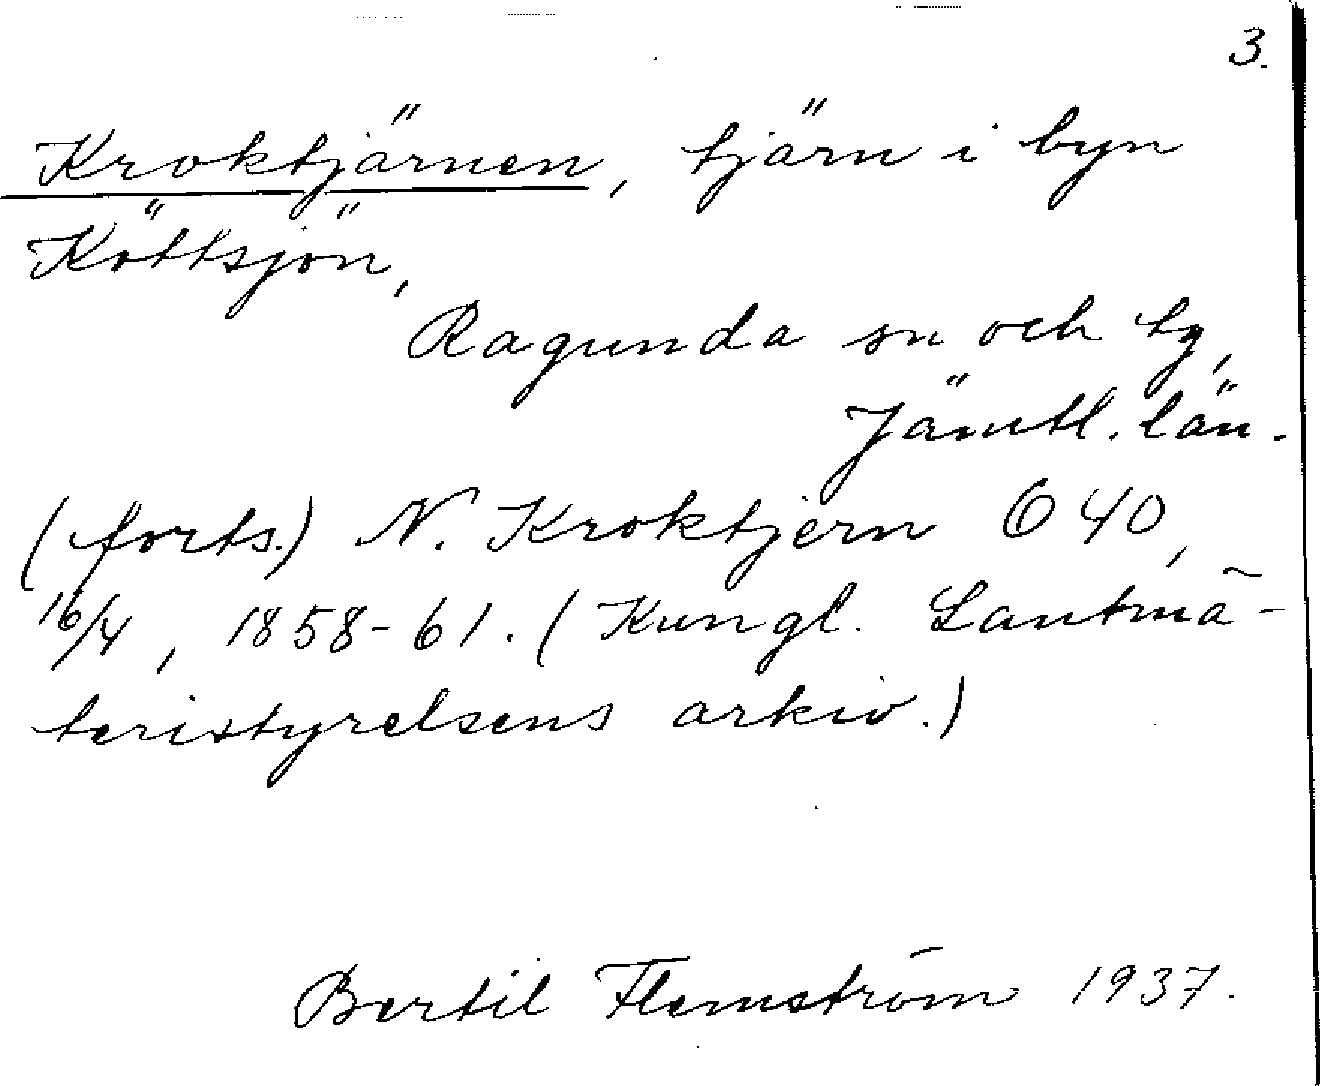 3.
Kroktjärnen, tjärn i byn
Köttsjön,
Ragunda sn och tg,
Jämtl. län.
(forts.) N. Kroktjern O 40,
16/4, 1858-61. (Kungl. Lantmä-
teristyrelsens arkiv.)
Bertil Flemström 1937.